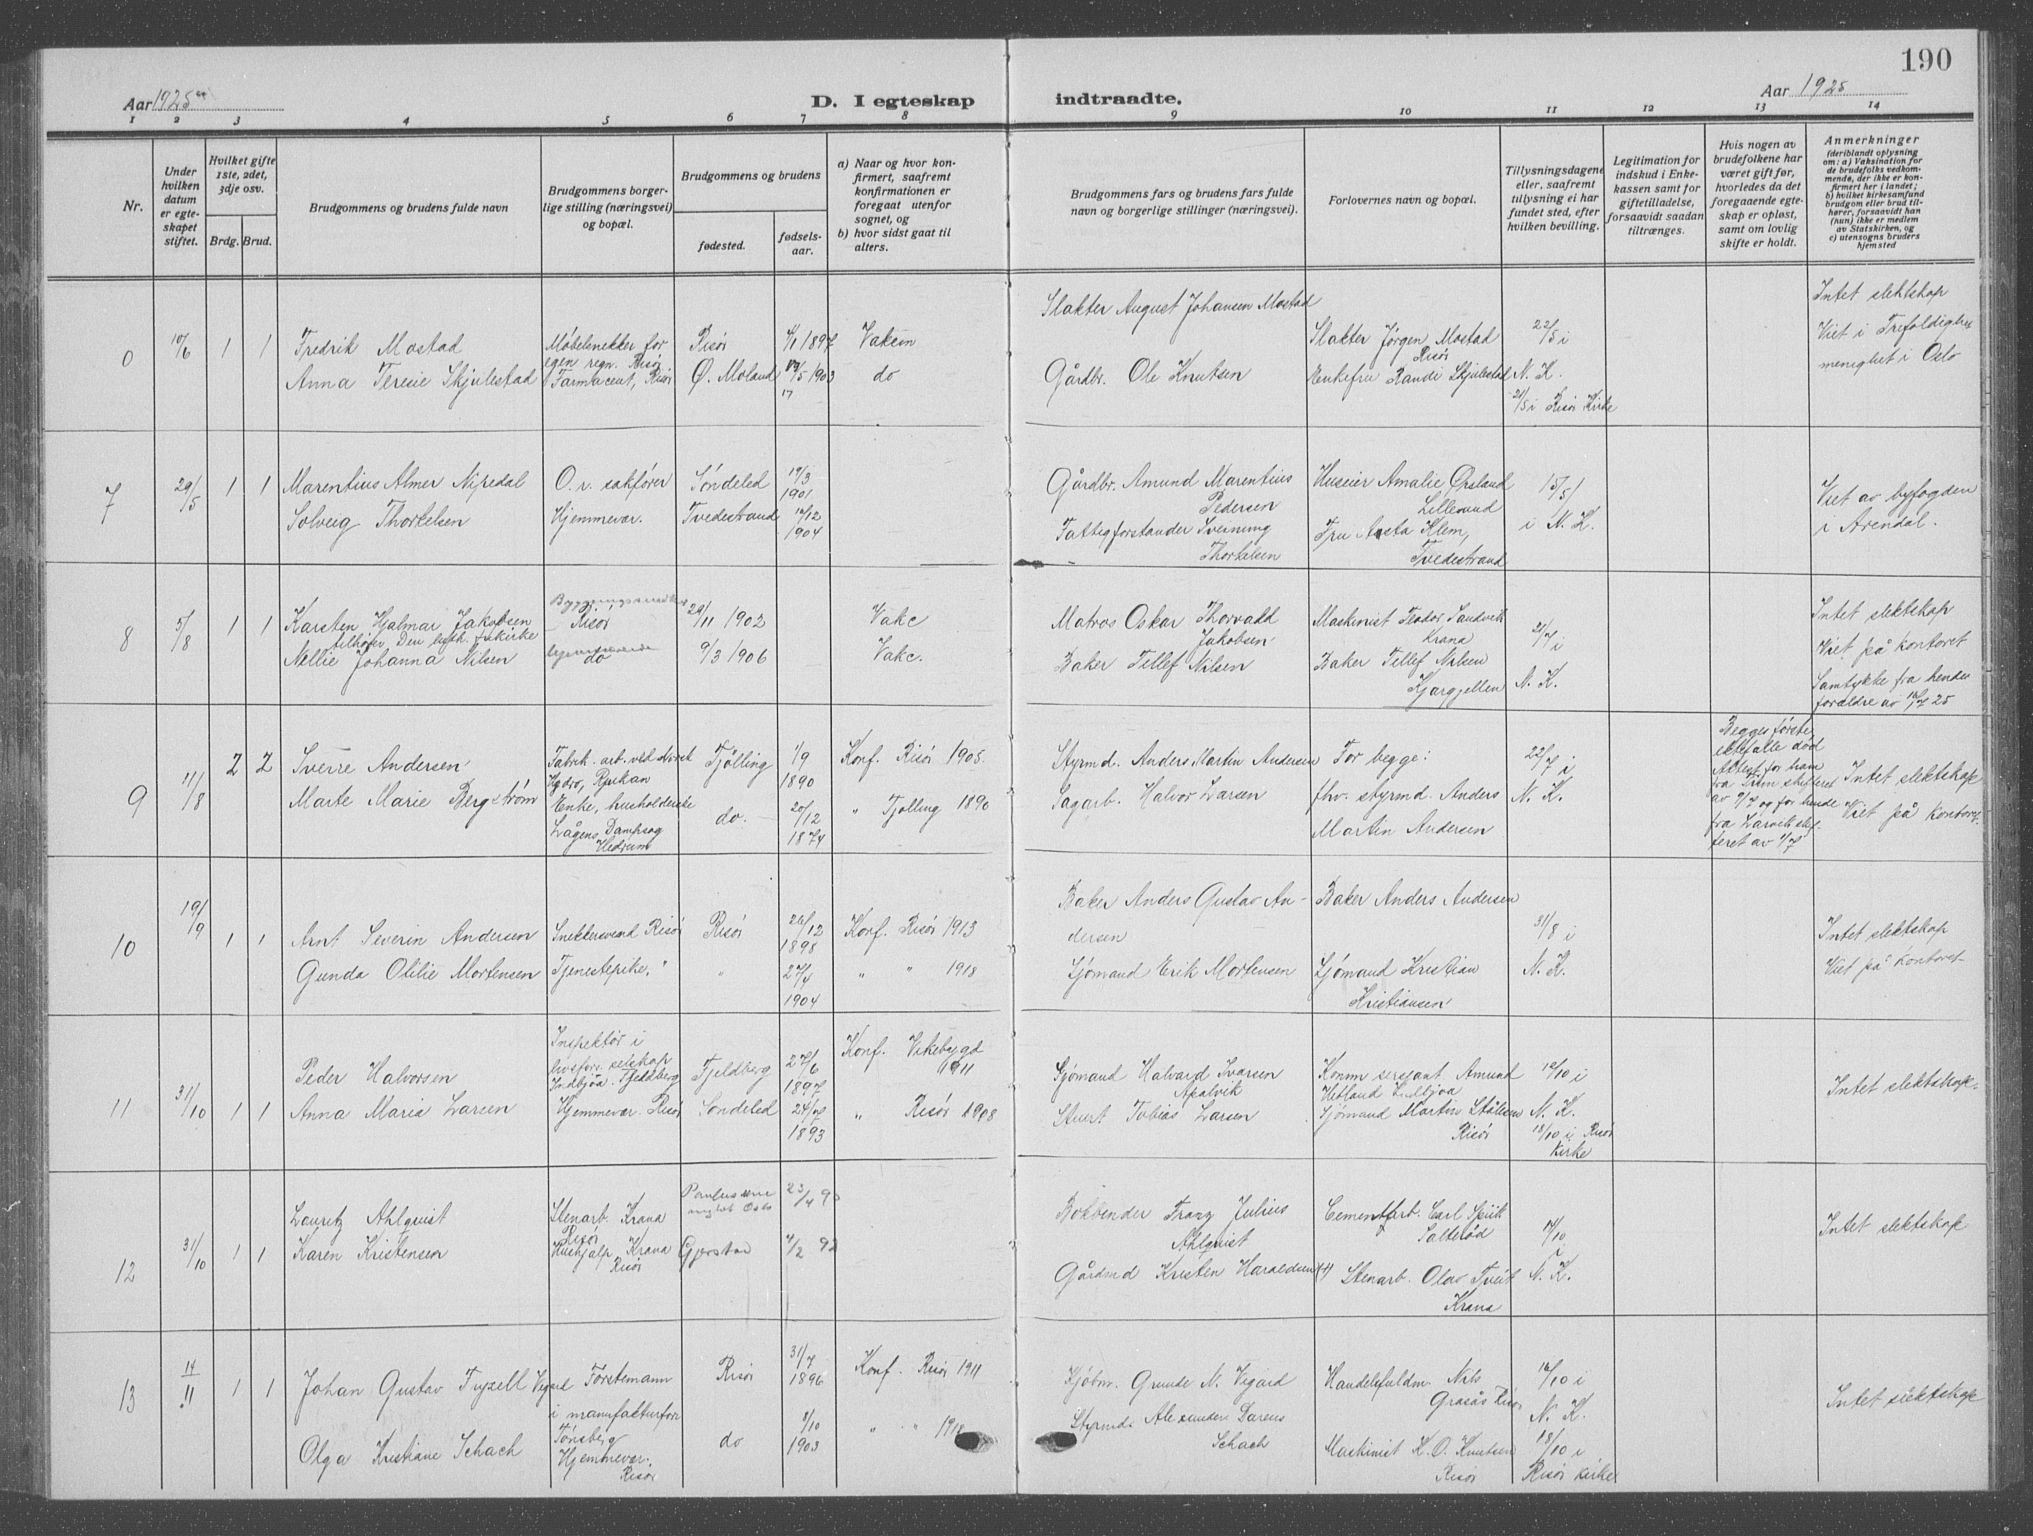 190
Aar 1925
D. I egteskap indtraadte.
Aar 1925
1 2 3 4 5 6 7 8 9 10 11 12 13 14
Nr.
Under hvilken datum er egteskapet stiftet.
Hvilket gifte 1ste, 2det, 3dje osv.
Brdg. Brud.
Brudgommens og brudens fulde navn
Brudgommens borgerlige stilling (næringsvei) og bopæl.
Brudgommens og brudens
fødested.
fødselsaar.
a) Naar og hvor konfirmert, saafremt konfirmationen er foregaat utenfor sognet, og
b) hvor sidst gaat til alters.
Brudgommens fars og brudens fars fulde navn og borgerlige stillinger (næringsvei).
Forlovernes navn og bopæl.
Tillysningsdagene eller, saafremt tillysning ei har fundet sted, efter hvilken bevilling.
Legitimation for indskud i Enkekassen samt for giftetilladelse, forsaavidt saadan tiltrænges.
Hvis nogen av brudefolkene har været gift før, hvorledes da det foregaaende egteskap er opløst, samt om lovlig skifte er holdt.
Anmerkninger
(deriblandt oplysning om: a) Vaksination for de brudefolks vedkommende, der ikke er konfirmert her i landet; b) hvilket kirkesamfund brudgom eller brud tilhører, forsaavidt han (hun) ikke er medlem av Statskirken, og c) utensogns bruders hjemsted
0 10/6 1 1
Fredrik Mostad
Anna Teresie Skjulestad
Møbelsnekker for
egen regn. Risør
Farmaceut, Risør
Risør
Ø. Moland
4/1 1897
17/5 1903
17
Vaksin
do
Slakter August Johansen Mostad
Gårdbr. Ole Knutsen
Slakter Jørgen Mostad
Risør
Enkefru Randi Skjulestad
22/5 i
N. K.
21/5 i Risør Kirke
Intet slektskap
Viet i Trefoldighets
menighet i Oslo
7 29/5 1 1
Marentius Almer Nipedal
Solveig Thorkelsen
O. r. sakfører
Hjemmevær.
Søndeled
Tvedestrand
19/3
1901
16/12
1904
Gårdbr. Amund Marentius
Pedersen
Fattigforstander Sveinung
Thorkelsen
Huseier Amalie Ørsland
Lillesand
Fru Aasta Klem,
Tvedestrand
15/5
i N. K.
Viet av byfogden
i Arendal.
8 5/8 1 1
Karsten Hjalmar Jakobsen
tilhører Den luth. frikirke
Nellie Johanna Nilsen
Risør
do
29/11 1902
9/3 1906
Vakc
Vakc.
Matros Oskar Thorvald
Jakobsen
Baker Tellef Nilsen
Maskinist Teodor Sandvik
Krana
Baker Tellef Nilsen
21/7 i
N. K.
Intet slektskap
Viet på kontoret
Samtykke fra hendes
forældre av 16/7 25
9 1/8 2 2
Sverre Andersen
Marte Marie Bergstrøm
Fabrik. arb. ved Norsk
Hydro, Rjukan
Enke, husholderske
Lågens Dampsag
Hedrum
Tjølling
do.
1/9
1890
20/12
1874
Konf. Risør 1905
" Tjølling 1890
Styrmd. Anders Martin Andersen
Sagarb. Halvor Larsen
For begge:
fhv. styrmd. Anders
Martin Andersen
22/7 i
N. K.
Begges første
ektefælle død
Attest for ham
fra Tinn skifteret
av 9/7 og for hende
fra Larvik skif-
teret av 1/7
Intet slektskap
Viet på kontoret
10 19/9 1 1
Arnt Severin Andersen
Gunda Otilie Mortensen
Snekkersvend Risør
Tjenestepike, "
Risør
"
26/12
1898
27/4
1904
Konf. Risør 1913
" " 1918
Baker Anders Gustav An-
dersen
Sjømand Erik Mortensen
Baker Anders Andersen
Sjømand Kristian
Kristiansen
31/8 i
N. K.
Intet slektskap
Viet på kontoret
11 31/10 1 1
Peder Halvorsen
Anna Maria Larsen
Inspektør i
livsfors. selskap
Indbjoa. Fjeldberg
Hjemmevær. Risør
Fjeldberg
Søndeled
27/6
1897
24/7
1893
Konf. Vikebygd
1911
" Risør 1908
Sjømand Halvard Ivarsen
Apalvik
Stuert Tobias Larsen
Komm sersjant Amund
Hetland Indbjoa
Sjømand Martin Ståleson
Risør
12/10 i
N. K.
18/10 i Risør
Kirke
Intet slektskap.
12 31/10 1 1
Lauritz Ahlquist
Karen Kristensen
Stenarb. Krana
Risør
Hushjælp Krana
Risør
Paulus menighet Oslo
Gjerstad
23/4 90
4/2 92
Bokbinder Franz Julius
Ahlquist
Gårdmd Kristen Haraldsen (+)
Cementarb. Carl Spiik
Salterød
Stenarb. Olav Tveit
Krana
17/10
i
N. K.
Intet slektskap
13 14/11 1 1
Johan Gustav Tyzell Vegard
Olga Kristiane Schach
Førstemann
i manufakturforr.
Tønsberg
Hjemmevær.
Risør
Risør
do
31/7
1896
8/10
1903
Konf. Risør 1911
" " 1918
Kjøbm. Grunde N. Vigard
Styrmd. Alexander Darens
Schach
Handelsfuldm. Nils
Grasås Risør
Maskinist K. O. Knutsen
Risør
16/10 i
N. K.
18/10 i
Risør Kirke
Intet slektskap